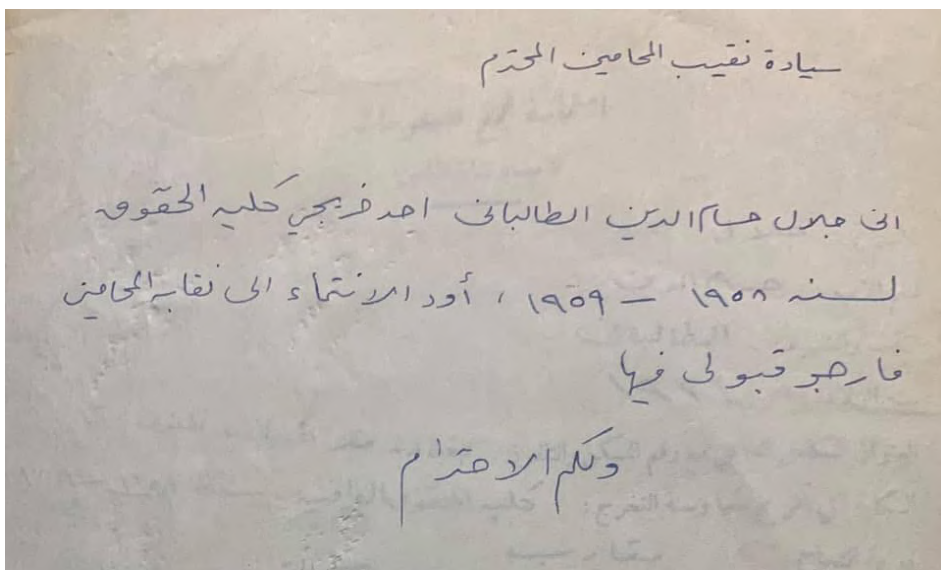 سيادة نقيب المحامين المحترم
اني جلال حسام الدين الطالباني احد خريجي كليه الحقوق
لسنه ١٩٥٨ – ١٩٥٩ ، أود الانتماء الى نقابه المحامين
فارجو قبولي فيها
ولكم الاحترام